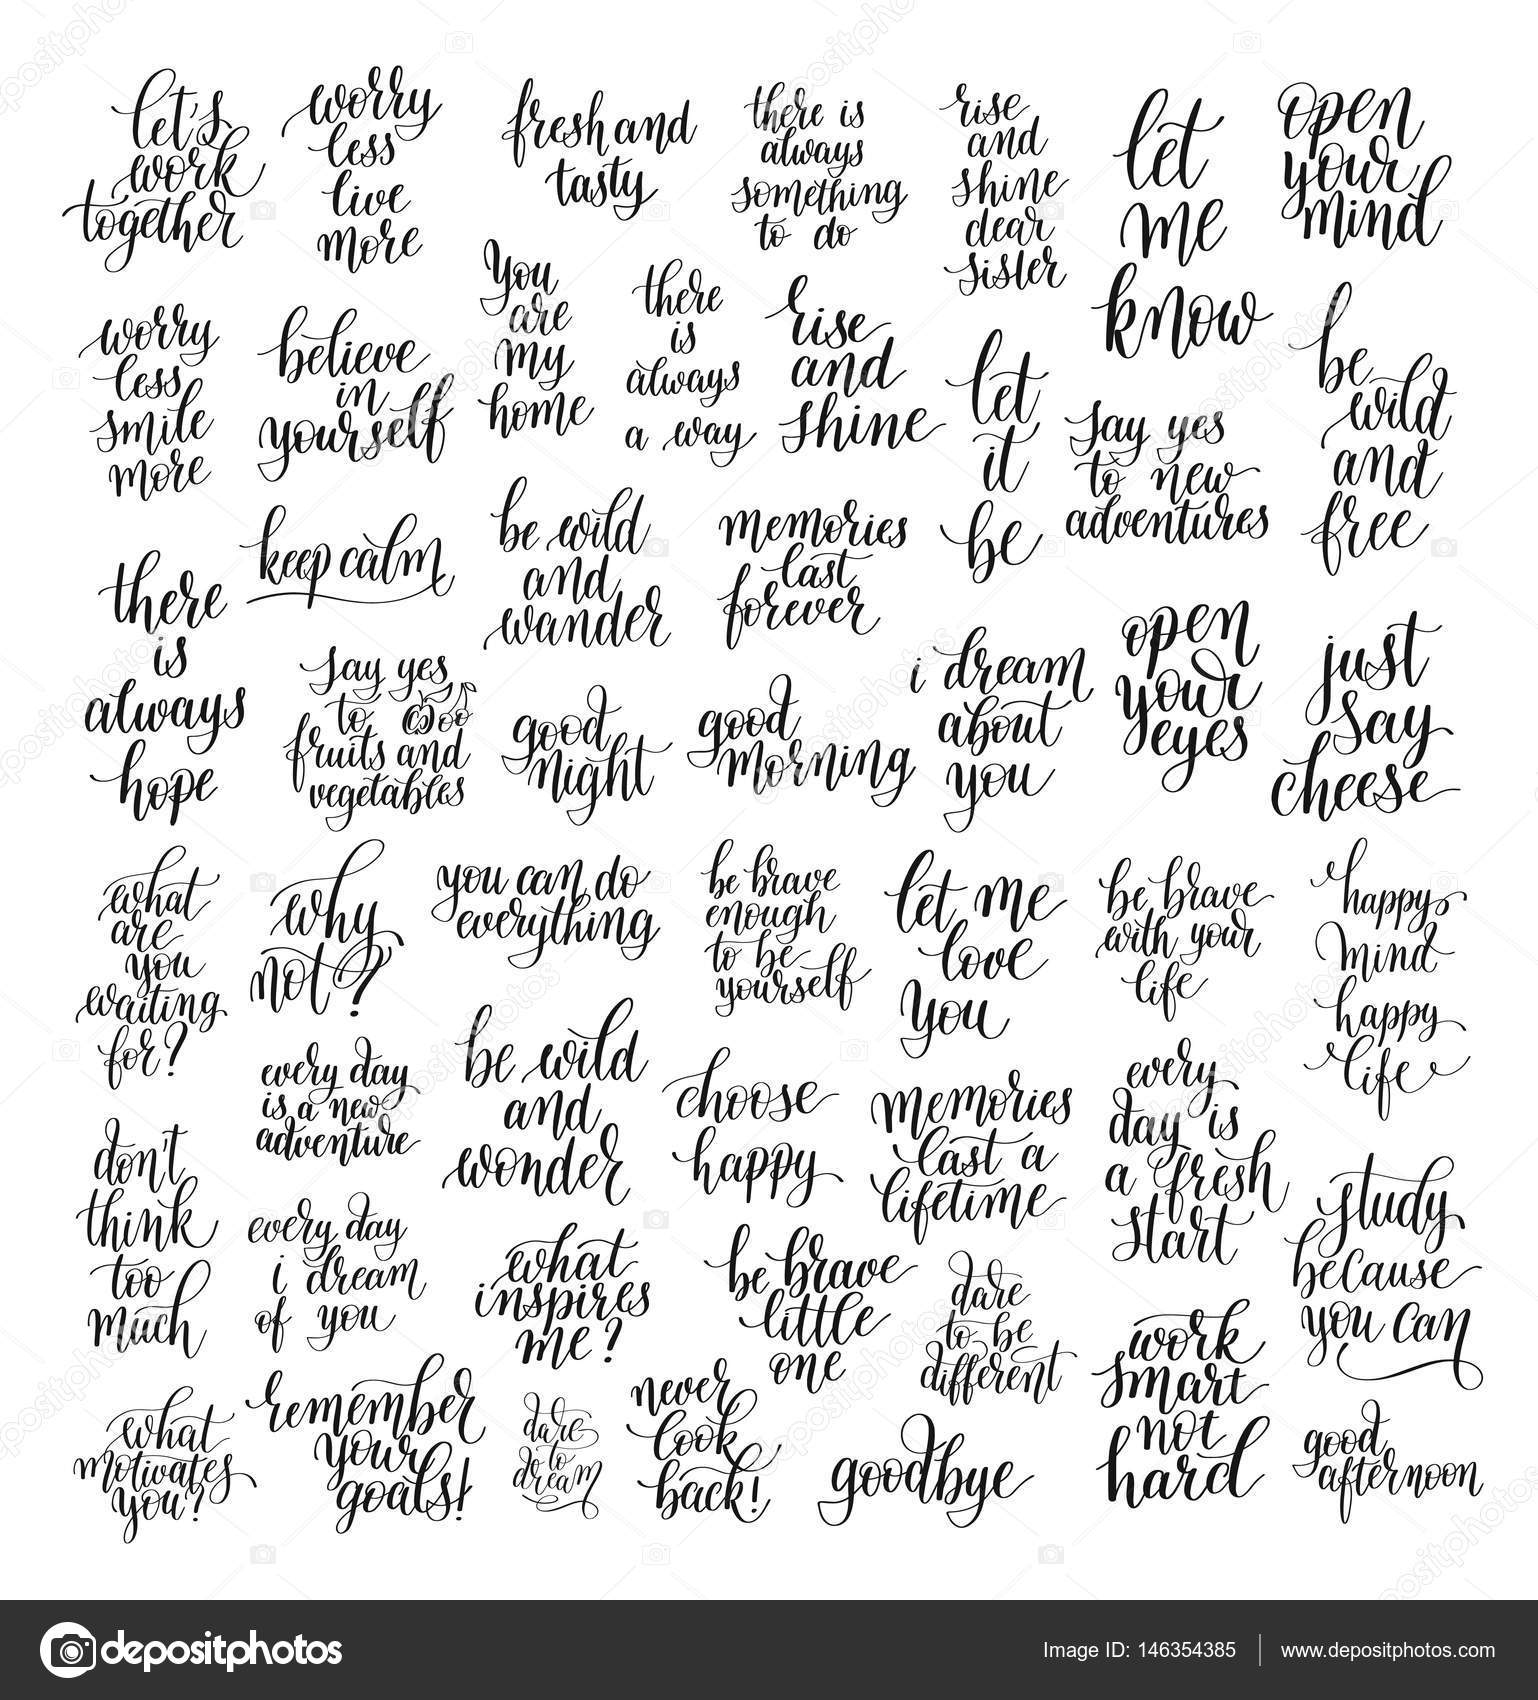 let's
work
together
worry
less
live
more
fresh and
tasty
there is
always
something
to do
rise
and
shine
dear
sister
let
me
know
open
your
mind
worry
less
smile
more
believe
in
yourself
you
are
my
home
there
is
always
a way
rise
and
shine
let
it
be
say yes
to new
adventures
be
wild
and
free
there
is
always
hope
keep calm
be wild
and
wander
memories
last
forever
say yes
to
fruits and
vegetables
good
night
good
morning
i dream
about
you
open
your
eyes
just
say
cheese
what
are
you
waiting
for?
why
not?
you can do
everything
be brave
enough
to be
yourself
let me
love
you
be brave
with your
life
happy
mind
happy
life
every day
is a new
adventure
be wild
and
wonder
choose
happy
memories
last a
lifetime
every
day is
a fresh
start
don't
think
too
much
every day
i dream
of you
what
inspires
me?
be brave
little
one
dare
to be
different
study
because
you can
work
smart
not
hard
what
motivates
you?
remember
your
goals!
dare
to
do
dream
never
look
back!
goodbye
good
afternoon
depositphotos
Image ID: 146354385
www.depositphotos.com